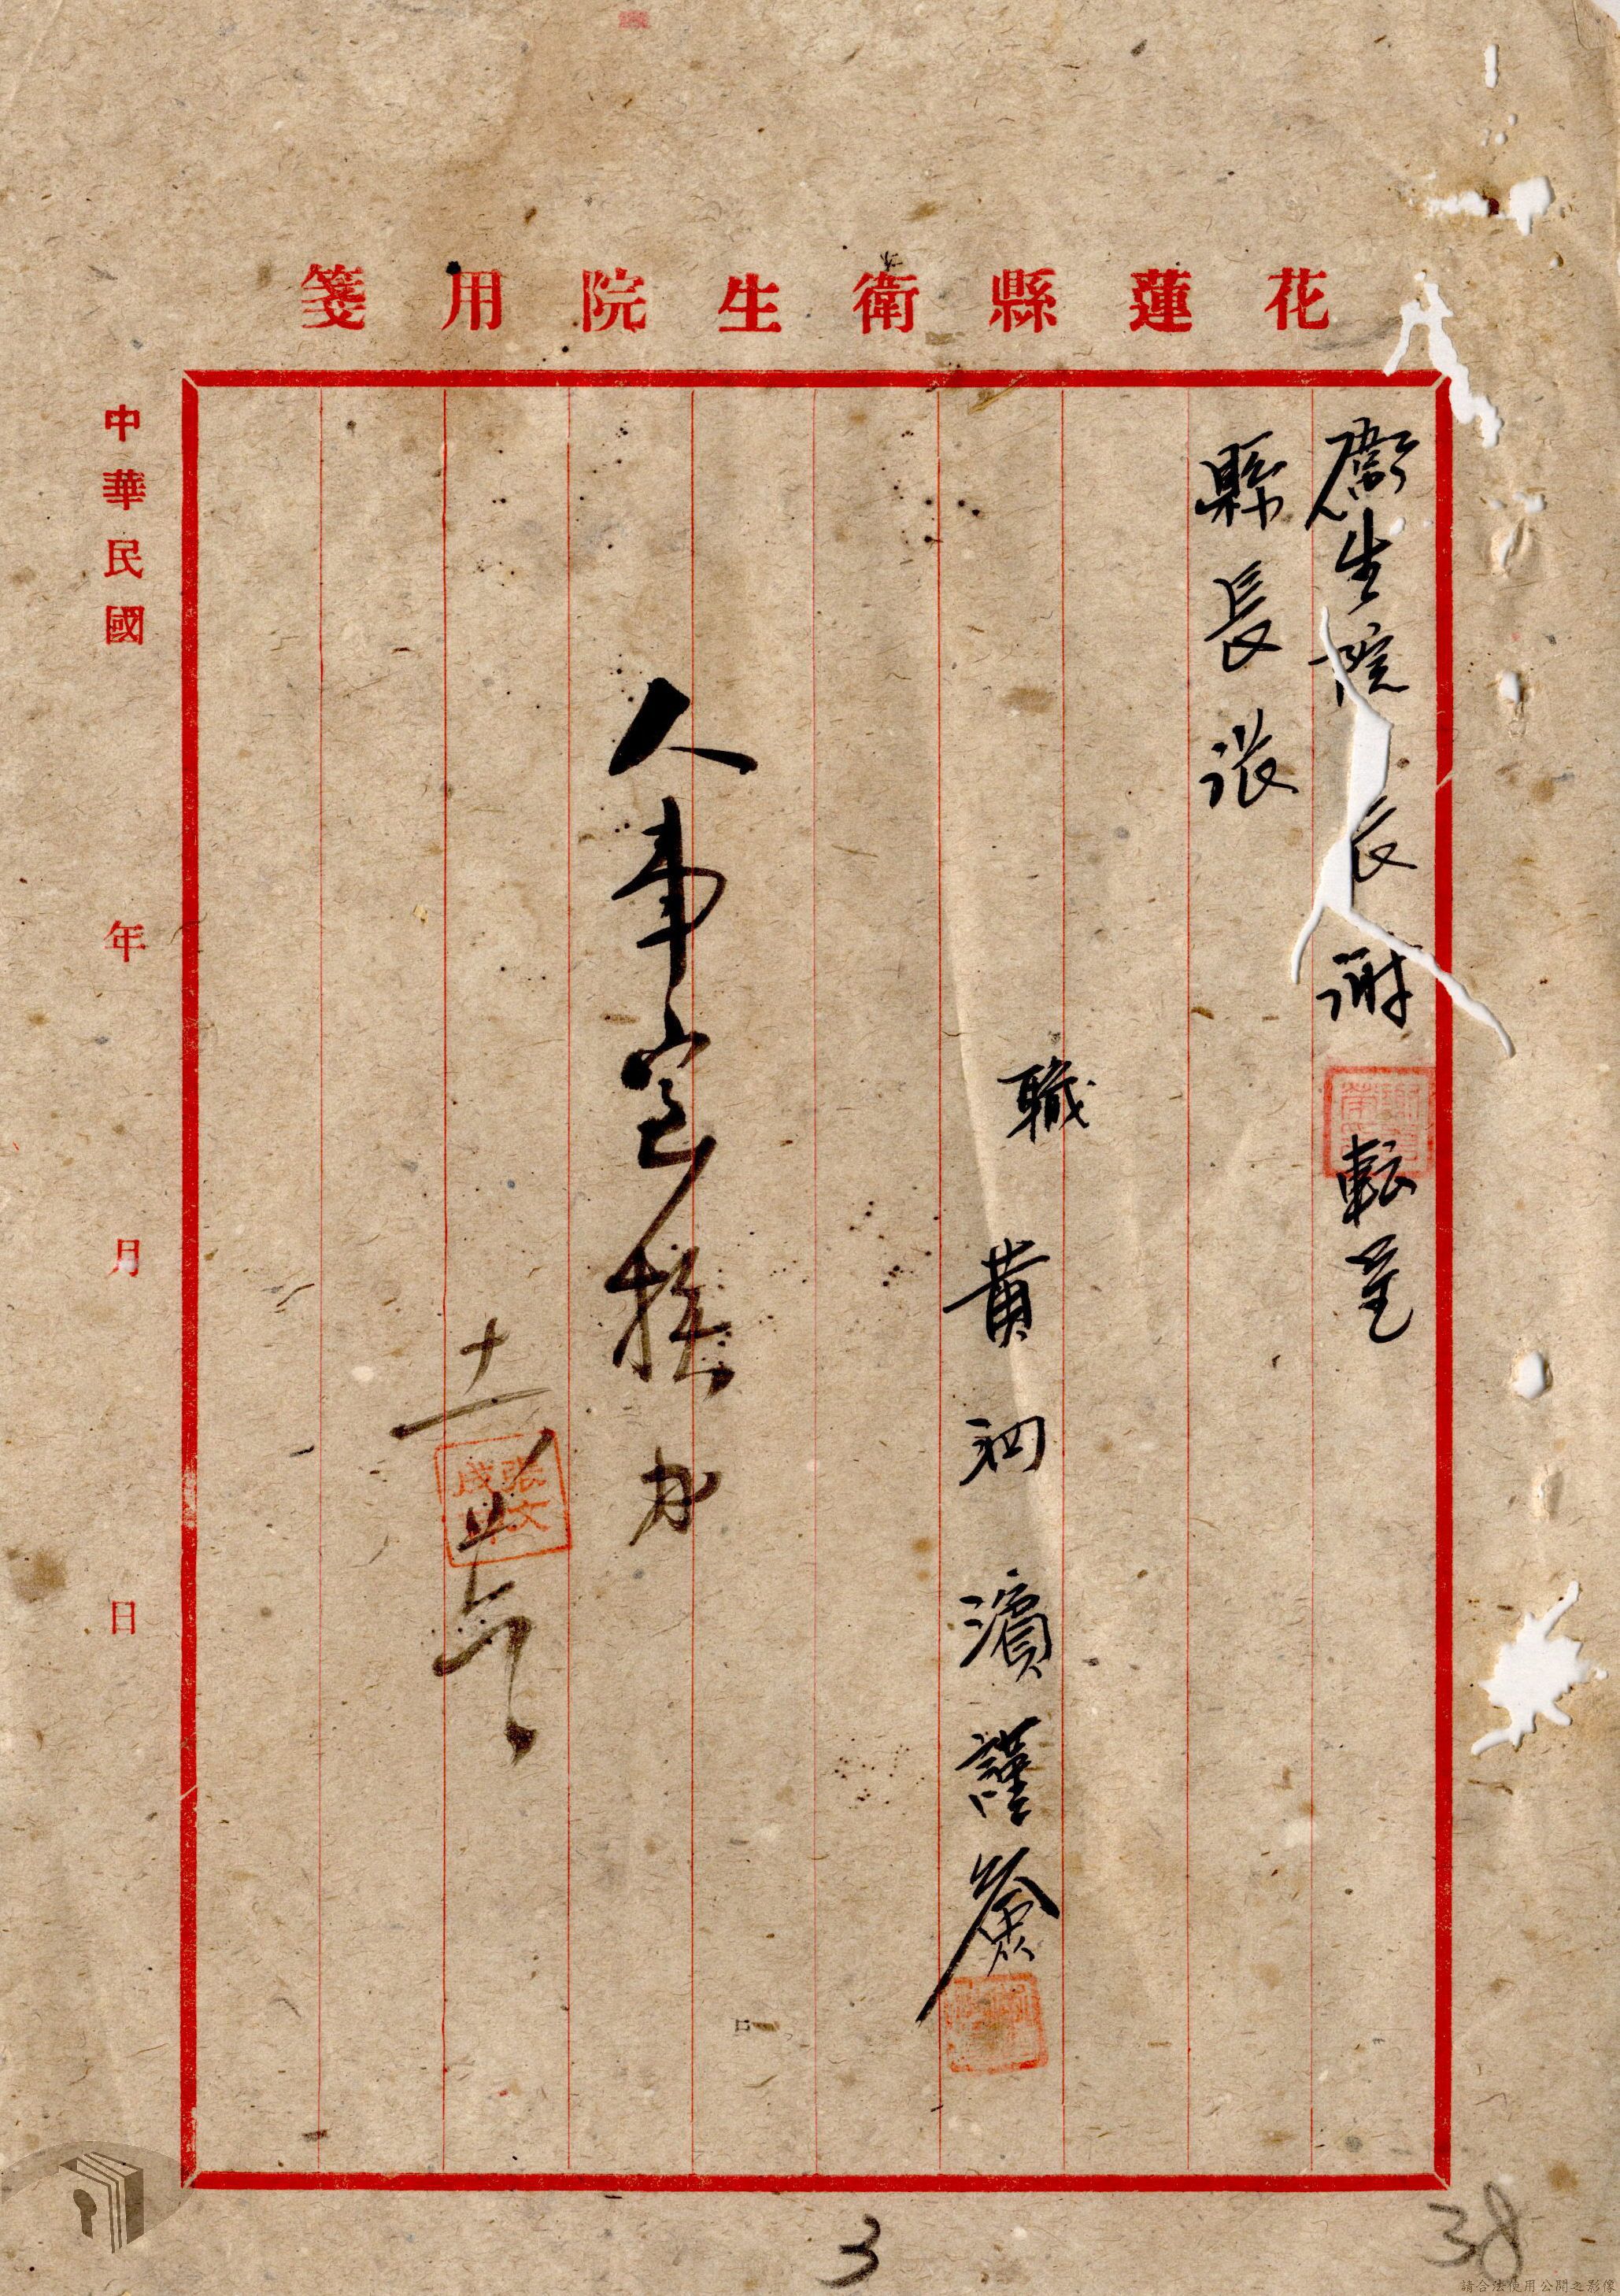 花蓮縣衛生院用箋
衛生院長謝 転呈
縣長張
職 黃泗濱謹簽
人事室擬办
十一
張文成
中華民國 年 月 日
3
38
請合法使用公開之影像